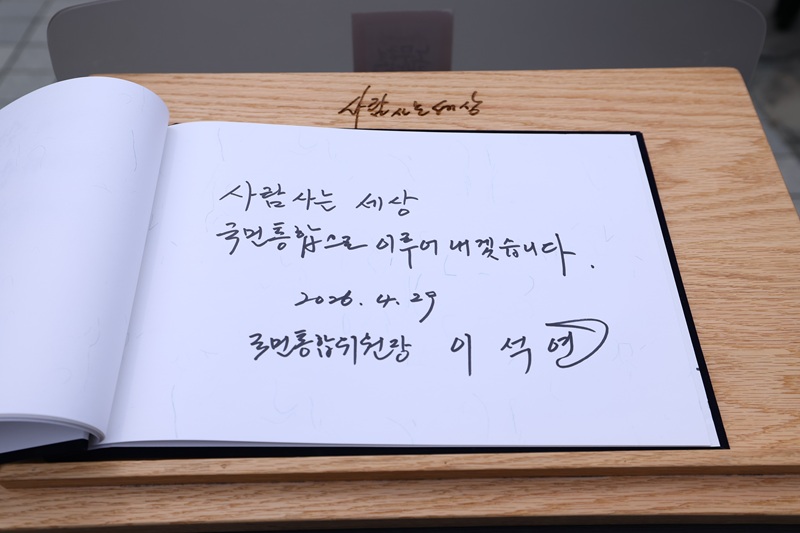 사람사는세상
사람 사는 세상
국민통합으로 이루어 내겠습니다.
2026. 4. 29
국민통합위원장 이 석 연